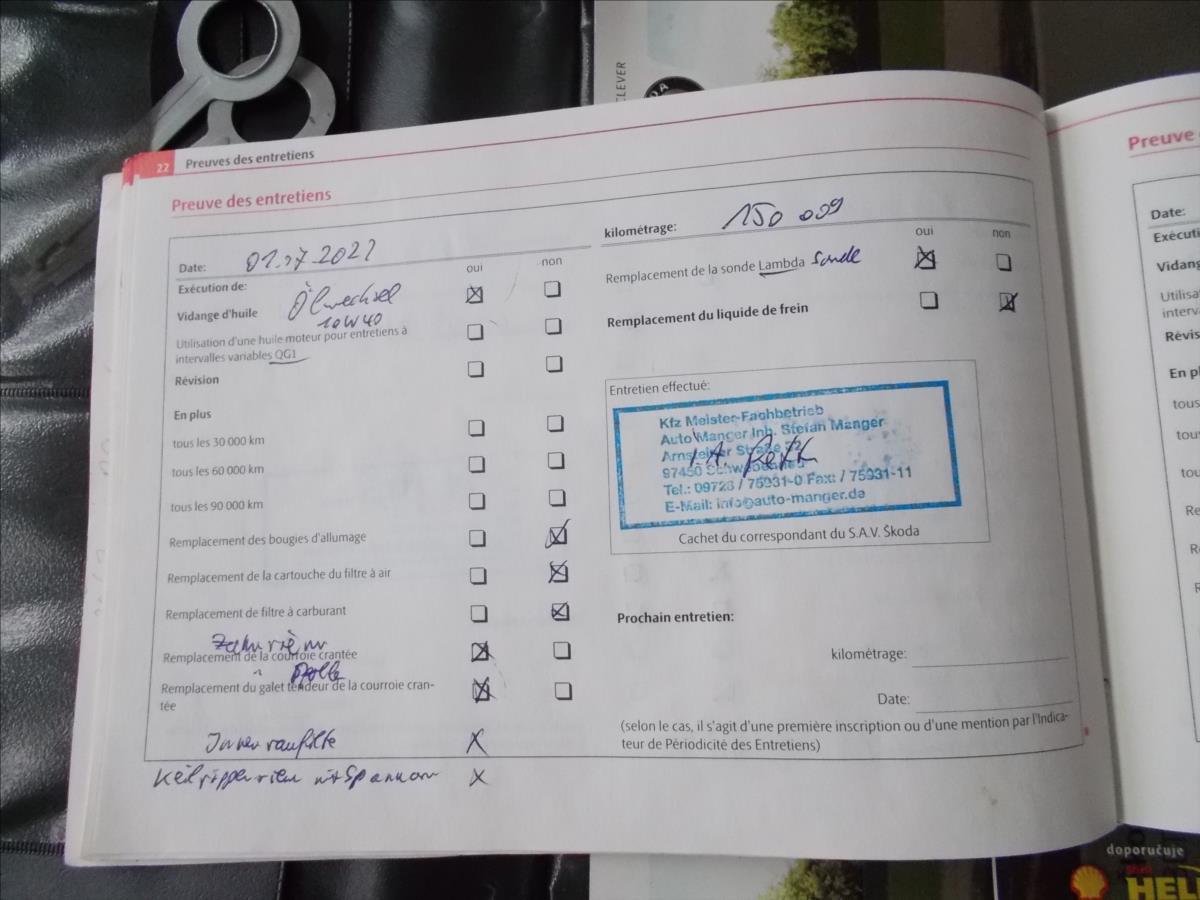 CLEVER
22 Preuves des entretiens
Preuve des entretiens
Date: 01.07.2022
oui non
Exécution de:
Vidange d'huile Ölwechsel
10W40
Utilisation d'une huile moteur pour entretiens à
intervalles variables QG1
Révision
En plus
tous les 30 000 km
tous les 60 000 km
tous les 90 000 km
Remplacement des bougies d'allumage
Remplacement de la cartouche du filtre à air
Remplacement de filtre à carburant
Zahnriem
Remplacement de la courroie crantée
" Rolle
Remplacement du galet tendeur de la courroie cran-
tée
Innenraumfilter X
Keilrippenriem mit Spannern X
kilométrage: 150 009
oui non
Remplacement de la sonde Lambda Sonde
Remplacement du liquide de frein
Entretien effectué:
Kfz Meister-Fachbetrieb
Auto Manger Inh. Stefan Manger
Arnsteiner Straße
97450
Tel.: 09728 / 75931-0 Fax: / 75931-11
E-Mail: info@auto-manger.de
i.A.
Cachet du correspondant du S.A.V. Škoda
Prochain entretien:
kilométrage:
Date:
(selon le cas, il s'agit d'une première inscription ou d'une mention par l'Indica-
teur de Périodicité des Entretiens)
Preuve
Date:
Exécuti
Vidang
Utilisa
interv
Révis
En pl
tous
tou
tou
Re
R
doporučuje
Shell
HEL